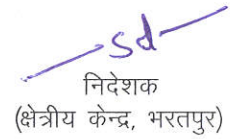 sd
निदेशक
(क्षेत्रीय केन्द्र, भरतपुर)